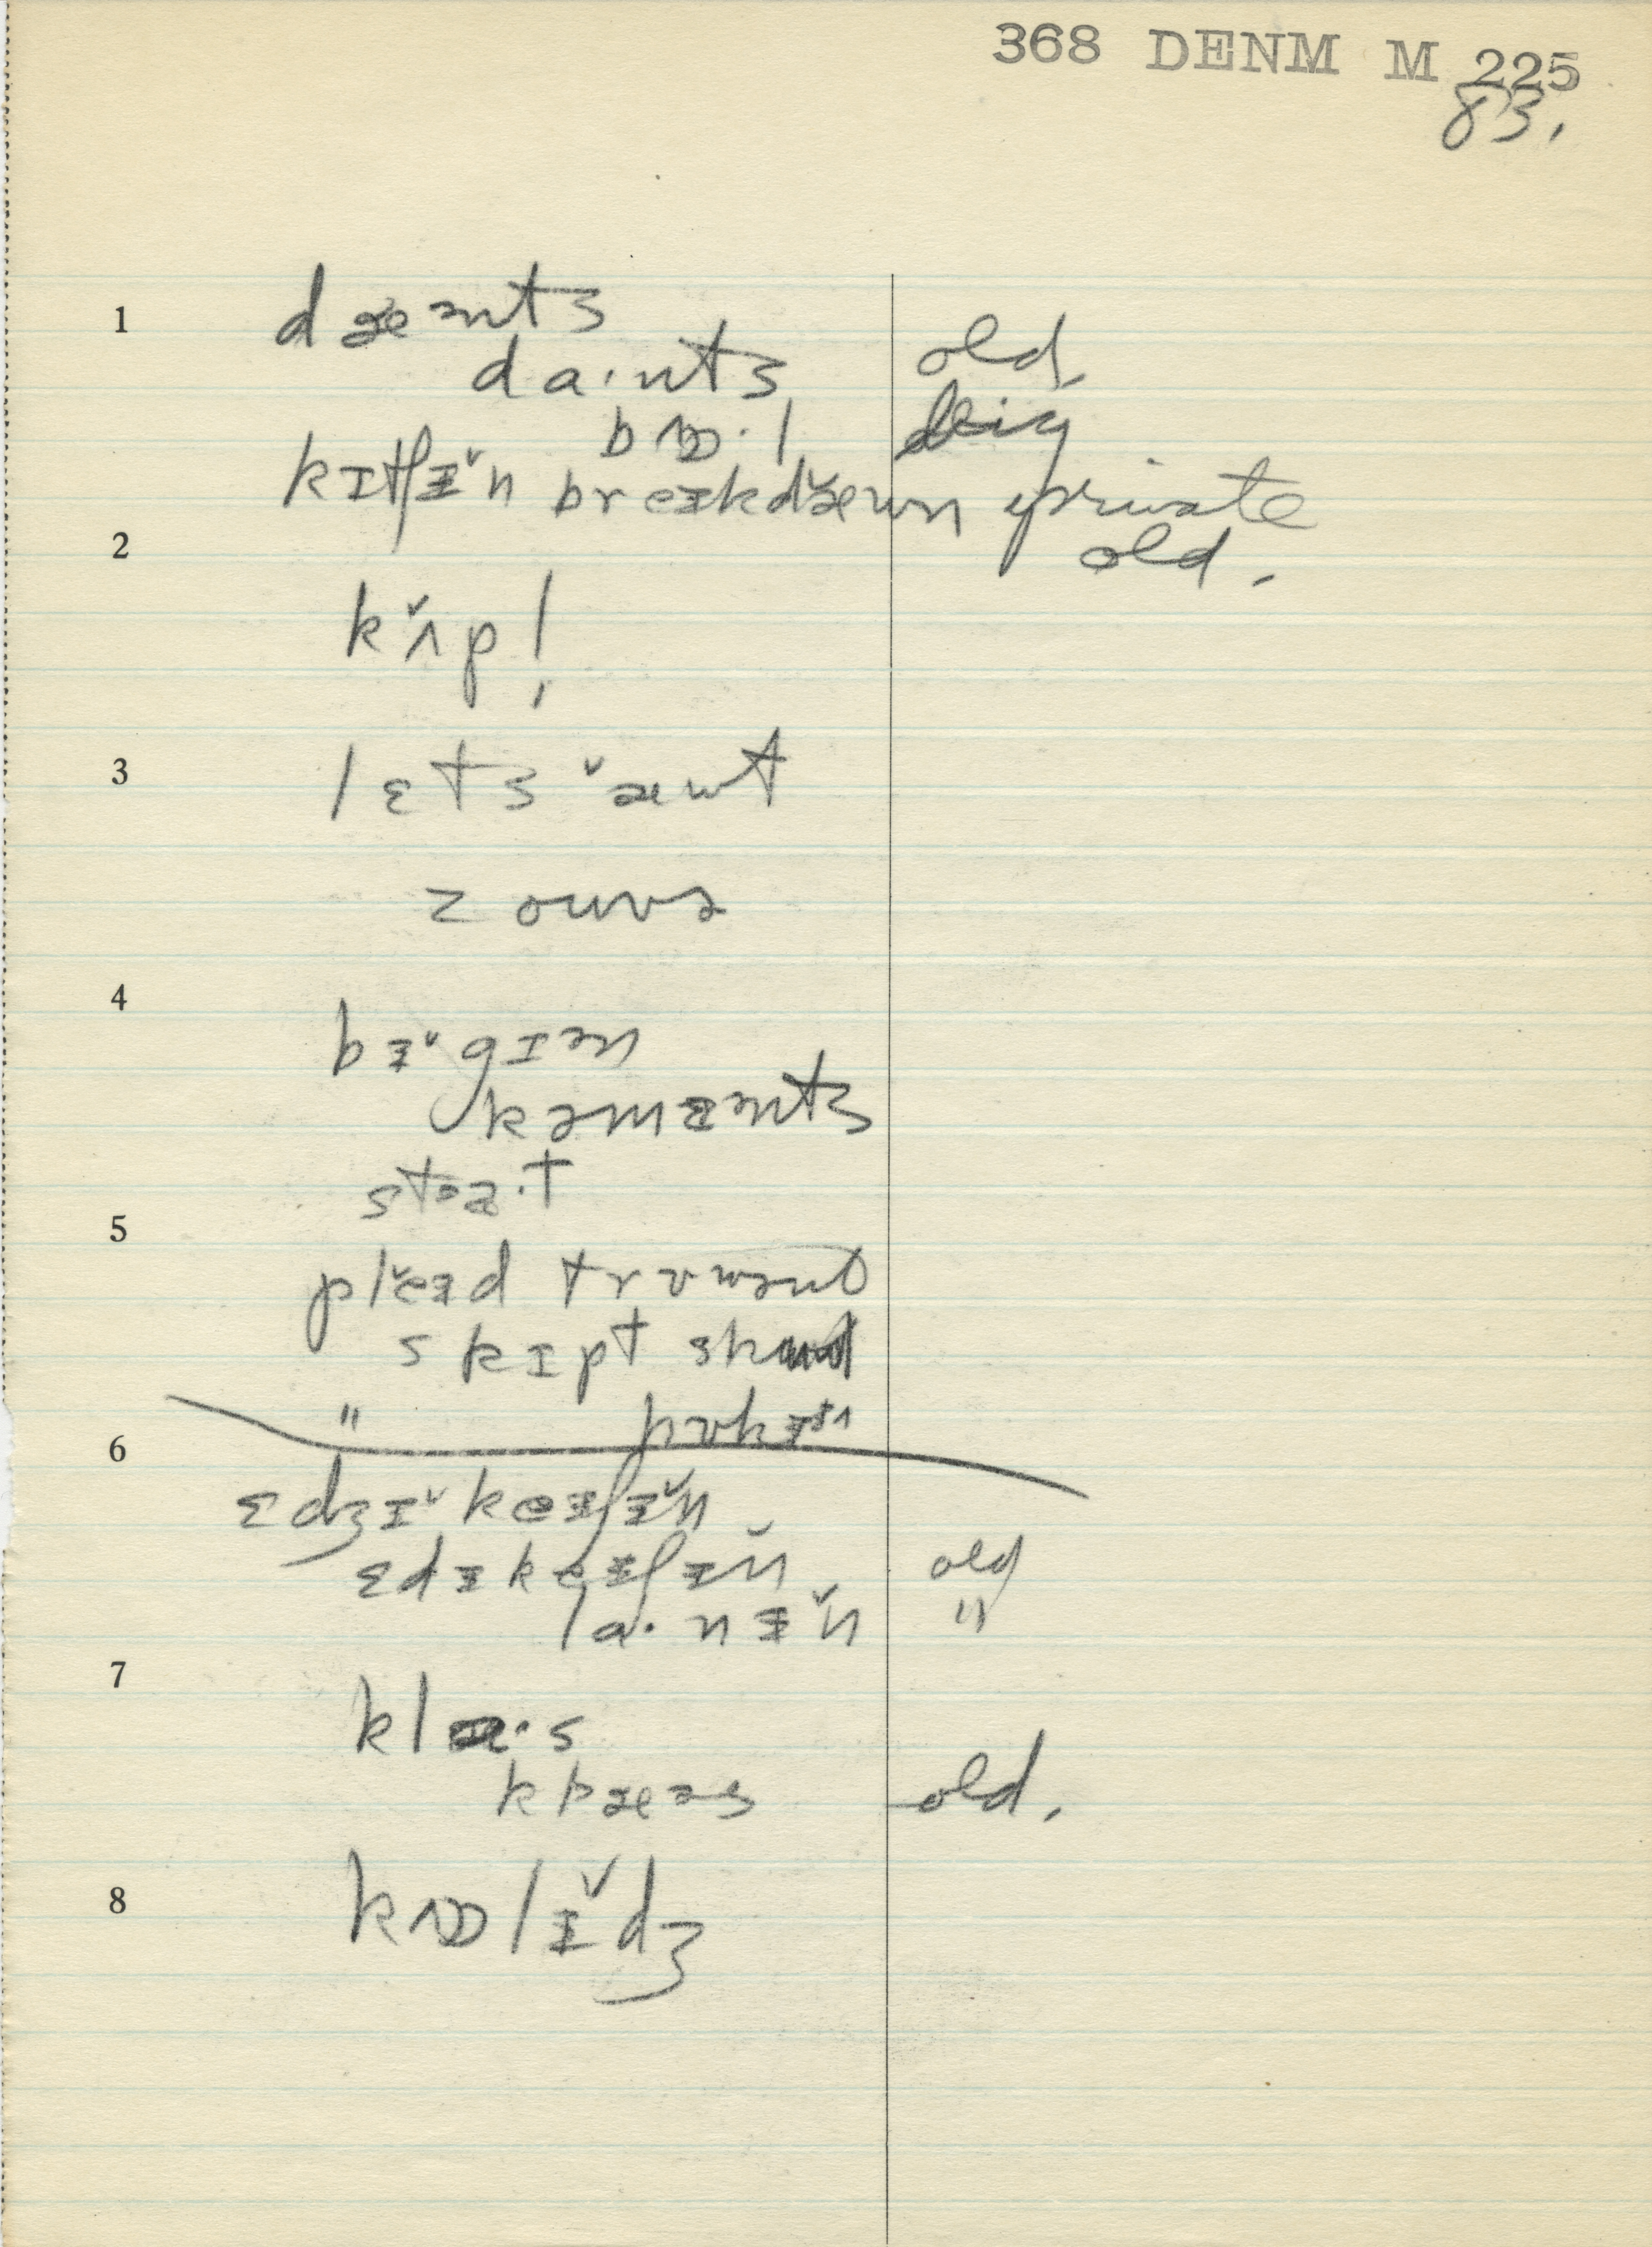 368 DENM M 225
83.
1
dæənts
da·nts old
bɒ·l big
kɪtʃɪ̆n breɪkdæ̆wn private
2 old.
kʌ̆p!
3
lɛts æ̆ut
z ouvə
4
bɪ̆gɪən
kəmɛənts
staə·t
5
plĕɪd truwənt
skɪpt skuul
6 〃
ɛdʒɪ̆keɪʃɪ̆n
ɛdɪkeɪʃɪ̆n old
la·nɪ̆n 〃
7
kla·s
klæəs old.
8
kɒlɪ̆dʒ